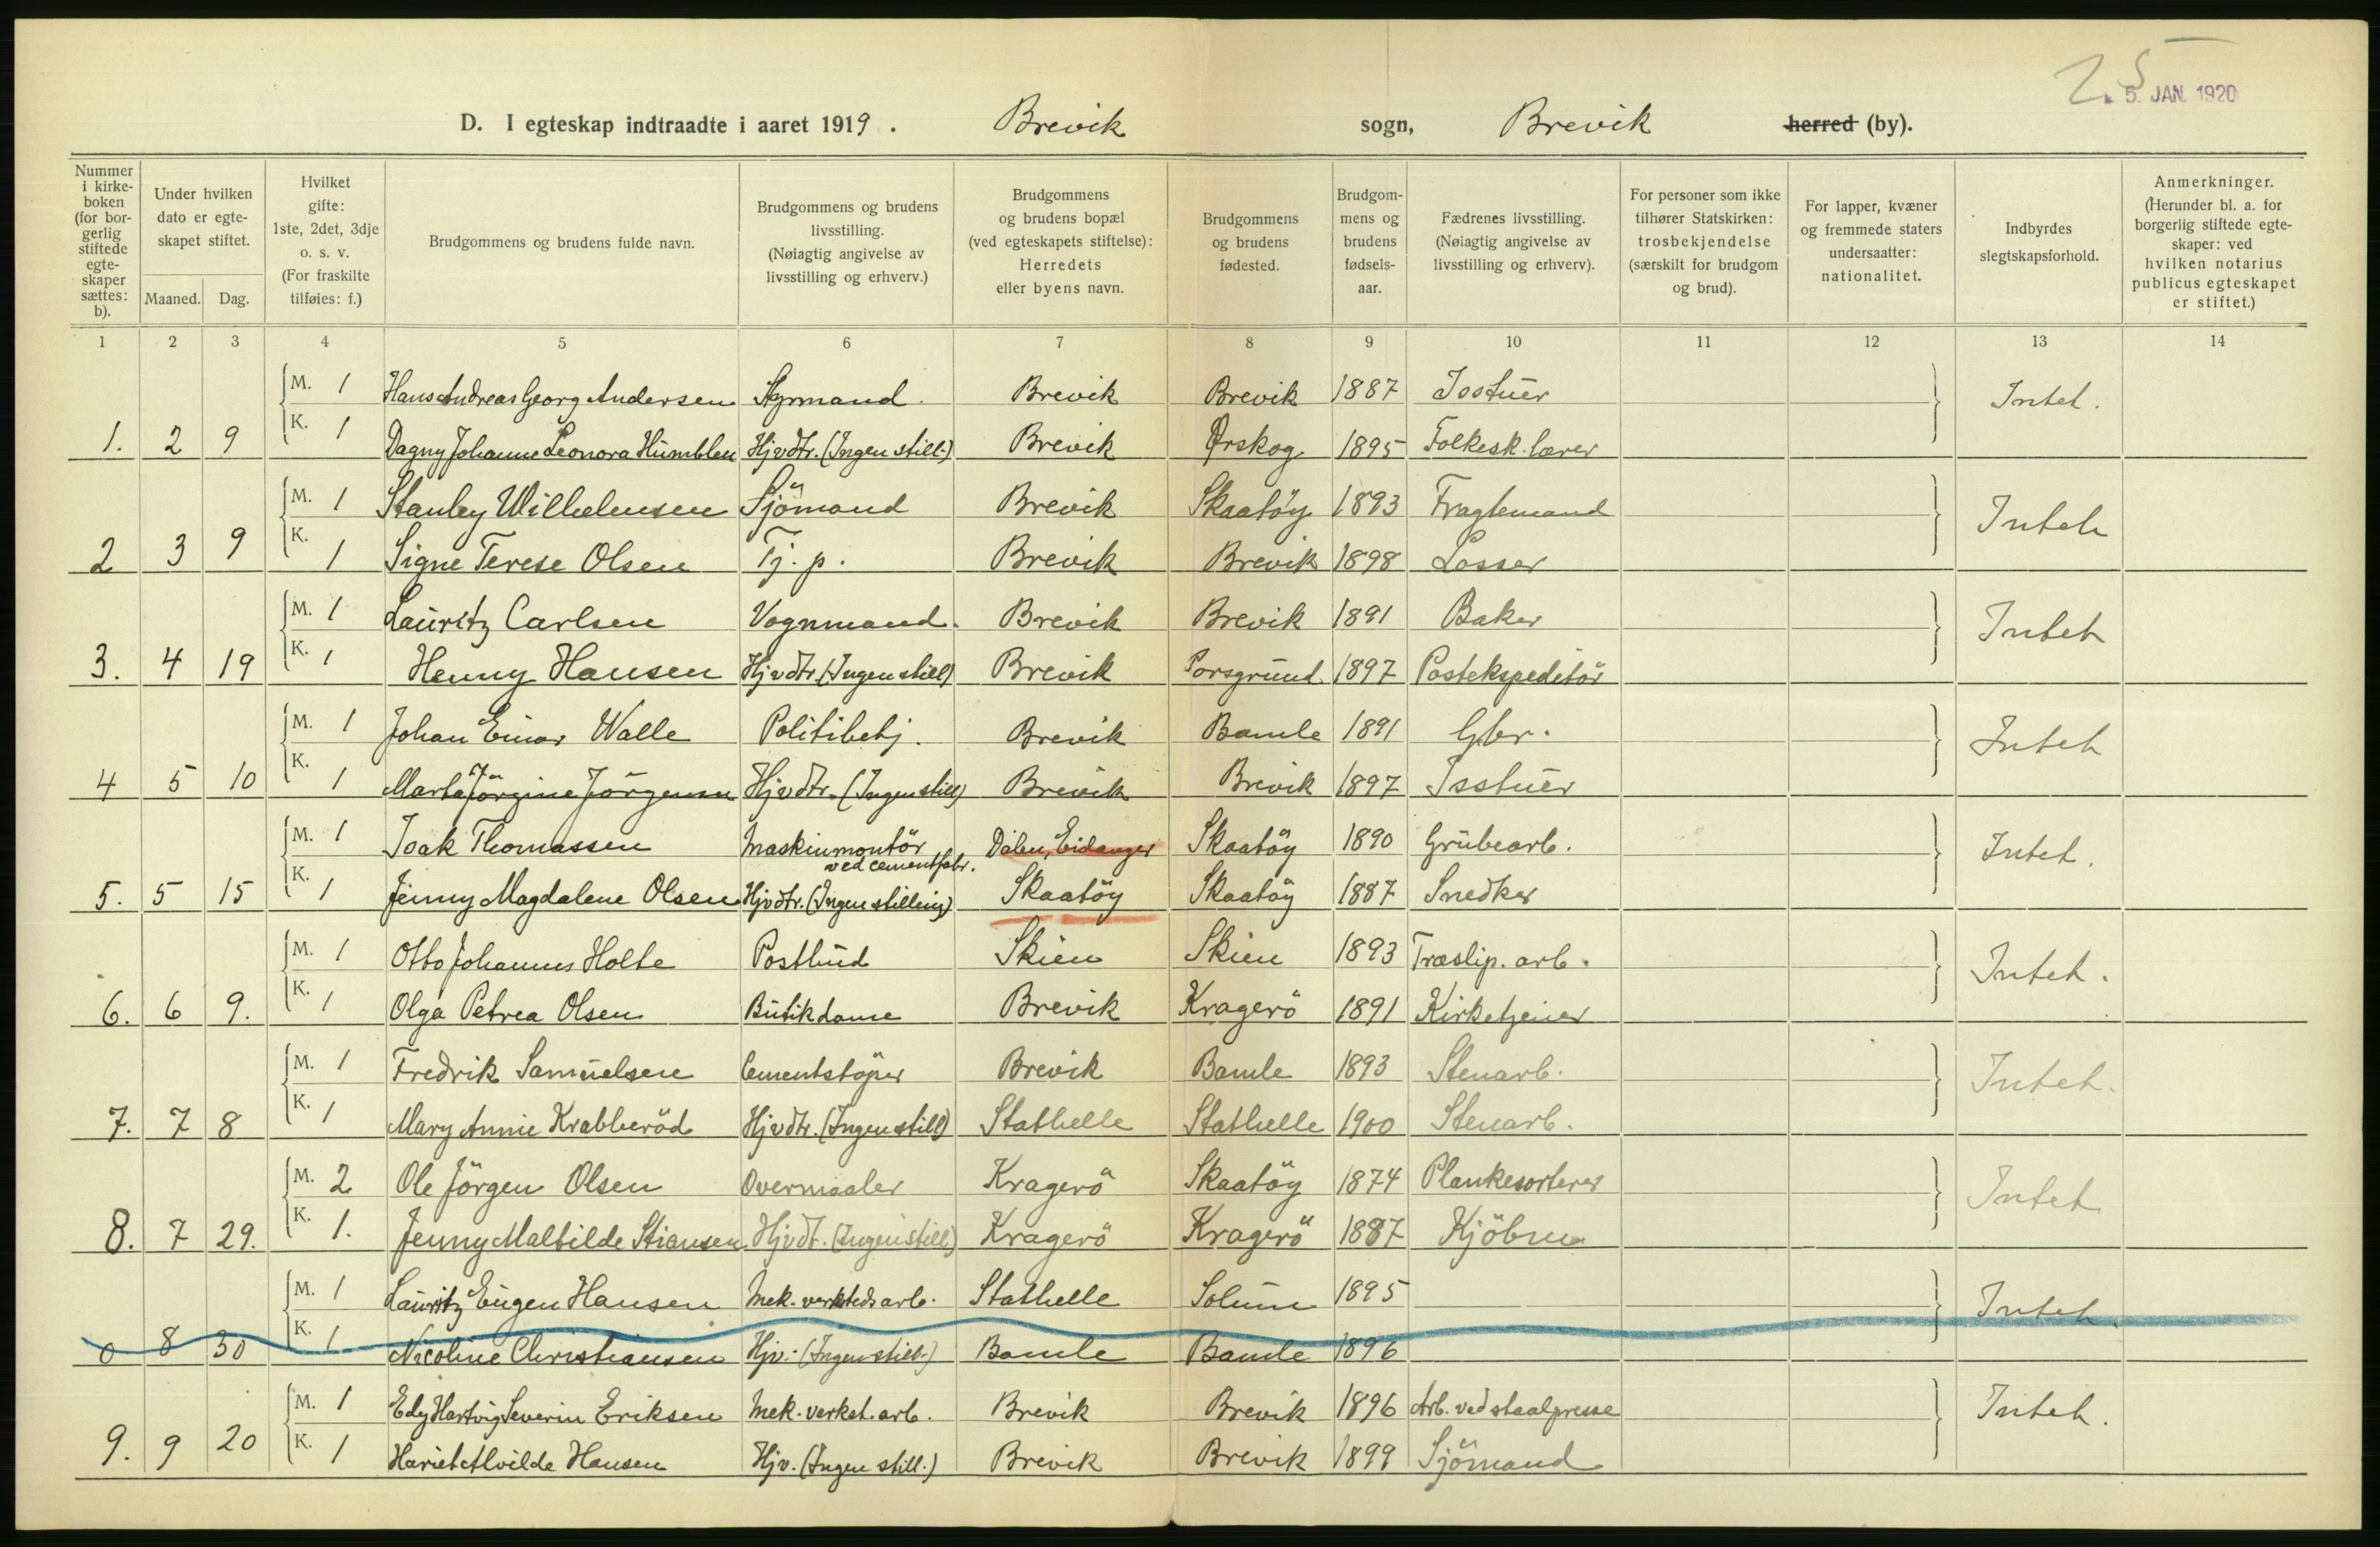 25
5. JAN. 1920
D. I egteskap indtraadte i aaret 1919. Brevik sogn, Brevik herred (by).
Nummer i kirkeboken (for borgerlig stiftede egteskaper sættes: b).
Under hvilken dato er egteskapet stiftet.
Maaned. Dag.
Hvilket gifte: 1ste, 2det, 3dje o. s. v. (For fraskilte tilføies: f.)
Brudgommens og brudens fulde navn.
Brudgommens og brudens livsstilling. (Nøiagtig angivelse av livsstilling og erhverv.)
Brudgommens og brudens bopæl (ved egteskapets stiftelse): Herredets eller byens navn.
Brudgommens og brudens fødested.
Brudgommens og brudens fødselsaar.
Fædrenes livsstilling. (Nøiagtig angivelse av livsstilling og erhverv).
For personer som ikke tilhører Statskirken: trosbekjendelse (særskilt for brudgom og brud).
For lapper, kvæner og fremmede staters undersaatter: nationalitet.
Indbyrdes slegtskapsforhold.
Anmerkninger. (Herunder bl. a. for borgerlig stiftede egteskaper: ved hvilken notarius publicus egteskapet er stiftet.)
1 2 3 4 5 6 7 8 9 10 11 12 13 14
M. 1 Hans Andreas Georg Andersen Styrmand. Brevik Brevik 1887 Isstuer Intet.
1. 2 9 K. 1 Dagny Johanne Leonora Humblen Hjvdtr. (Ingen still.) Brevik Ørskog 1895 Folkesk. lærer
M. 1 Stanley Wilhelmsen Sjömand Brevik Skaatöy 1893 Fragtemand Intet
2 3 9 K. 1 Signe Terese Olsen Tj. p. Brevik Brevik 1898 Losser
M. 1 Lauritz Carlsen Vognmand. Brevik Brevik 1891 Baker Intet
3. 4 19 K. 1 Henny Hansen Hjvdtr. (Ingen still) Brevik Porsgrund. 1897 Postekspeditör
M. 1 Johan Einar Walle Politibetj. Brevik Bamle 1891 Gbr. Intet
4 5 10 K. 1 Marta Jörgine Jörgensen Hjvdtr. (Ingen still) Brevik Brevik 1897 Isstuer
M. 1 Isak Thomassen Maskinmontör ved cementfabr. Dalen, Eidanger Skaatöy 1890 Grubearb. Intet.
5. 5 15 K. 1 Jenny Magdalene Olsen Hjvdtr. (Ingen stilling) Skaatöy Skaatöy 1887 Snedker
M. 1 Otto Johannes Holte Postbud Skien Skien 1893 Træslip. arb. Intet.
6. 6 9. K. 1 Olga Petrea Olsen Butikdame Brevik Kragerö 1891 Kirketjener
M. 1 Fredrik Samuelsen Cementstöper Brevik Bamle 1893 Stenarb. Intet.
7. 7 8 K. 1 Mary Annie Krabberöd Hjvdtr. (Ingen still) Stathelle Stathelle 1900 Stenarb.
M. 2 Ole Jörgen Olsen Overmaaler Kragerö Skaatöy 1874 Plankesorterer Intet
8. 7 29. K. 1. Jenny Maltilde Stiansen Hjvdt. (Ingen still) Kragerö Kragerö 1887 Kjöbm
M. 1 Lauritz Eugen Hansen Mek. verkstedsarb. Stathelle Solum 1895 Intet.
0 8 30 K. 1 Nicoline Christiansen Hjv. (Ingen still.) Bamle Bamle 1896
M. 1 Edy Hartvig Severin Eriksen Mek. verkst. arb. Brevik Brevik 1896 Arb. ved staalpresse Intet.
9. 9 20 K. 1 Hariet Alvilde Hansen Hjv. (Ingen still.) Brevik Brevik 1899 Sjömand